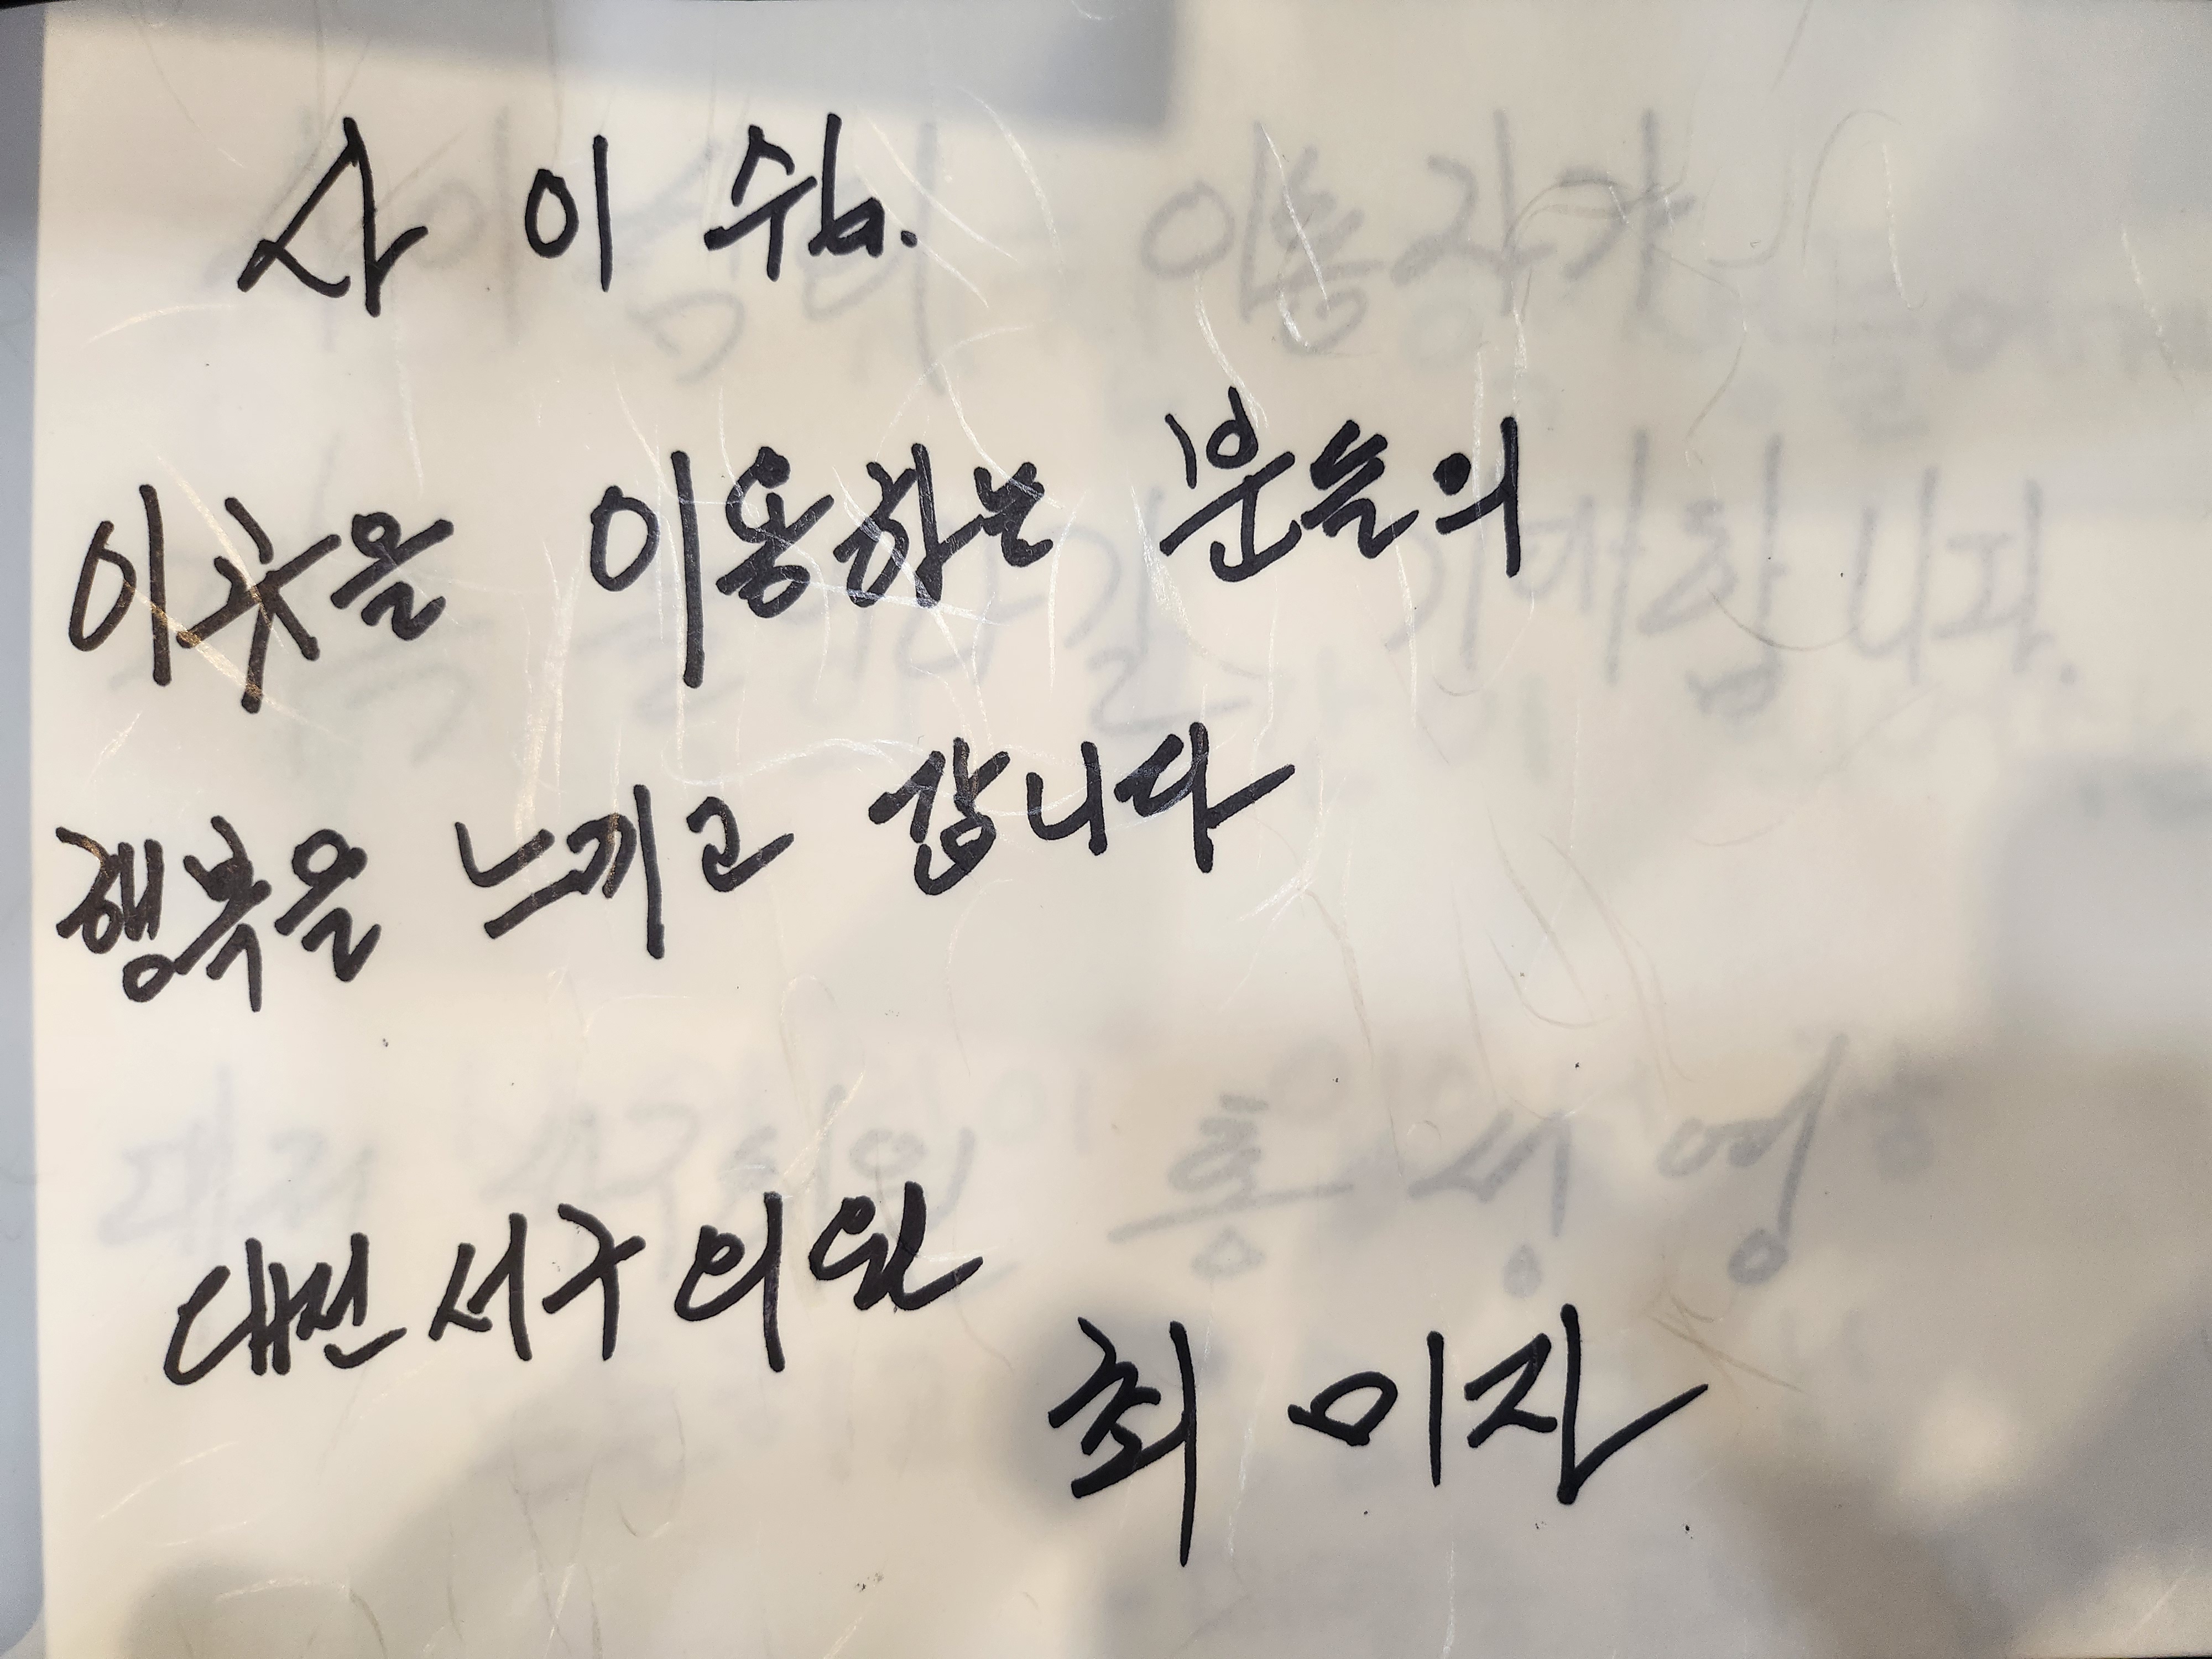 사이쉼.
이곳을 이용하는 분들의
행복을 느끼고 갑니다
대전 서구의원
최미자